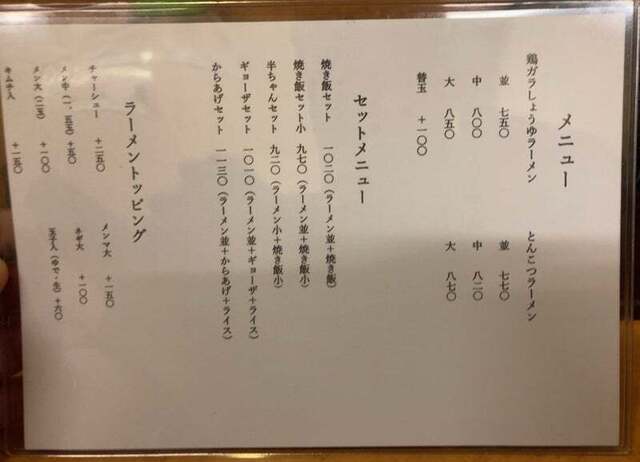 メニュー
鶏ガラしょうゆラーメン
並 七五〇
中 八〇〇
大 八五〇
替玉 +一〇〇
とんこつラーメン
並 七七〇
中 八二〇
大 八七〇
セットメニュー
焼き飯セット 一〇二〇(ラーメン並+焼き飯)
焼き飯セット小 九七〇(ラーメン並+焼き飯小)
半ちゃんセット 九二〇(ラーメン小+焼き飯小)
ギョーザセット 一〇一〇(ラーメン並+ギョーザ+ライス)
からあげセット 一一三〇(ラーメン並+からあげ+ライス)
ラーメントッピング
チャーシュー +二五〇
メン中(一、五玉)+五〇
メン大(二玉) +一〇〇
キムチ入 +一五〇
メンマ大 +一五〇
ネギ大 +一〇〇
玉子入(ゆで・生)+六〇